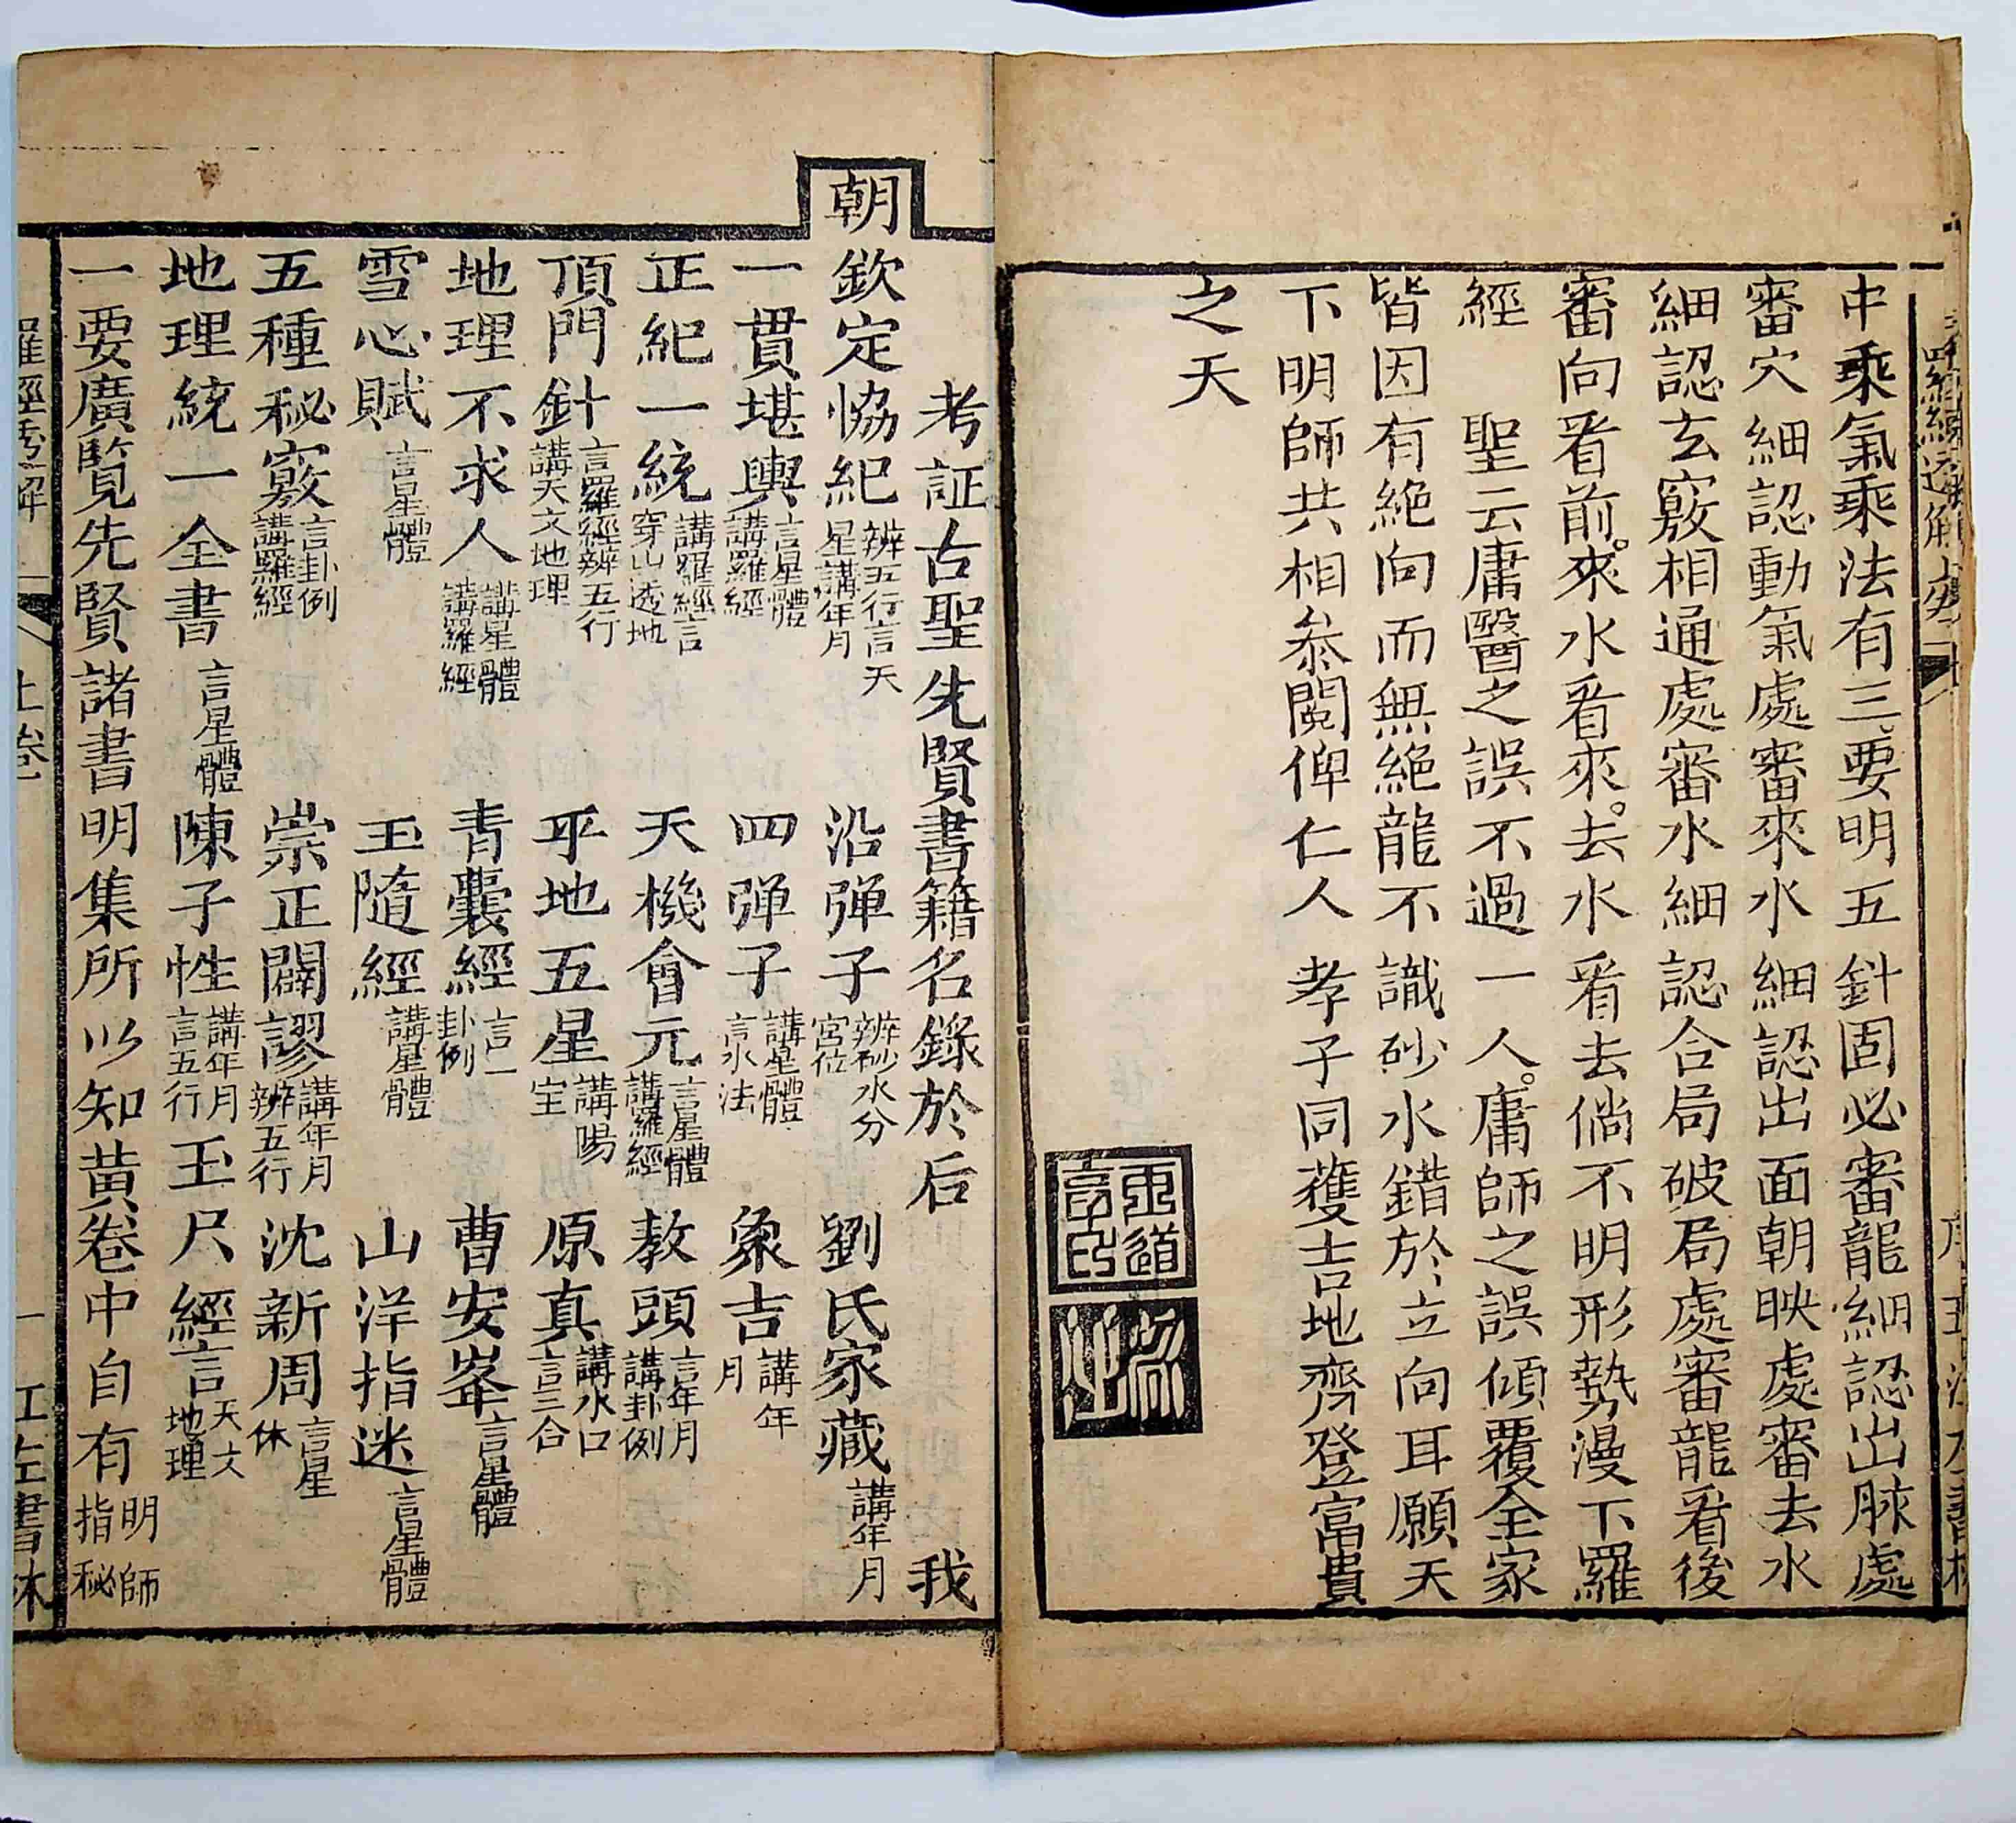 中乘氣乘法有三要明五針固必審龍細認出脉處
審穴細認動氣處審來水細認出面朝映處審去水
細認玄竅相通處審水細認合局破局處審龍看後
審向看前。來水看來。去水看去倘不明形勢漫下羅
經 聖云庸醫之誤不過一人。庸師之誤傾覆全家
皆因有絶向而無絶龍不識砂水錯於立向耳願天
下明師共相叅閱俾仁人孝子同獲吉地齊登富貴
之天
考証古聖先賢書籍名錄於后 我
朝欽定協紀 辨五行言天星講年月 沿弹子 辨砂水分宮位 劉氏家藏 講年月
一貫堪輿 言星體講羅經 四弹子 講星體言水法 象吉 講年月
正紀一統 講羅經言穿山透地 天機會元 言星體講羅經 教頭 言年月講卦例
頂門針 言羅經辨五行講天文地理 平地五星 講陽宅 原真 講水口言三合
地理不求人 講星體講羅經 青囊經 言一卦例 曹安峯 言星體
雪心賦 言星體 玉隨經 講星體 山洋指迷 言星體
五種秘竅 言卦例講羅經 崇正闢謬 講年月辨五行 沈新周 言星体
地理統一全書 言星體 陳子性 講年月言五行 玉尺經 言天文地理
一要廣覧先賢諸書明集所以知黄卷中自有 明師指秘
羅經透解 上卷 一 江左書林